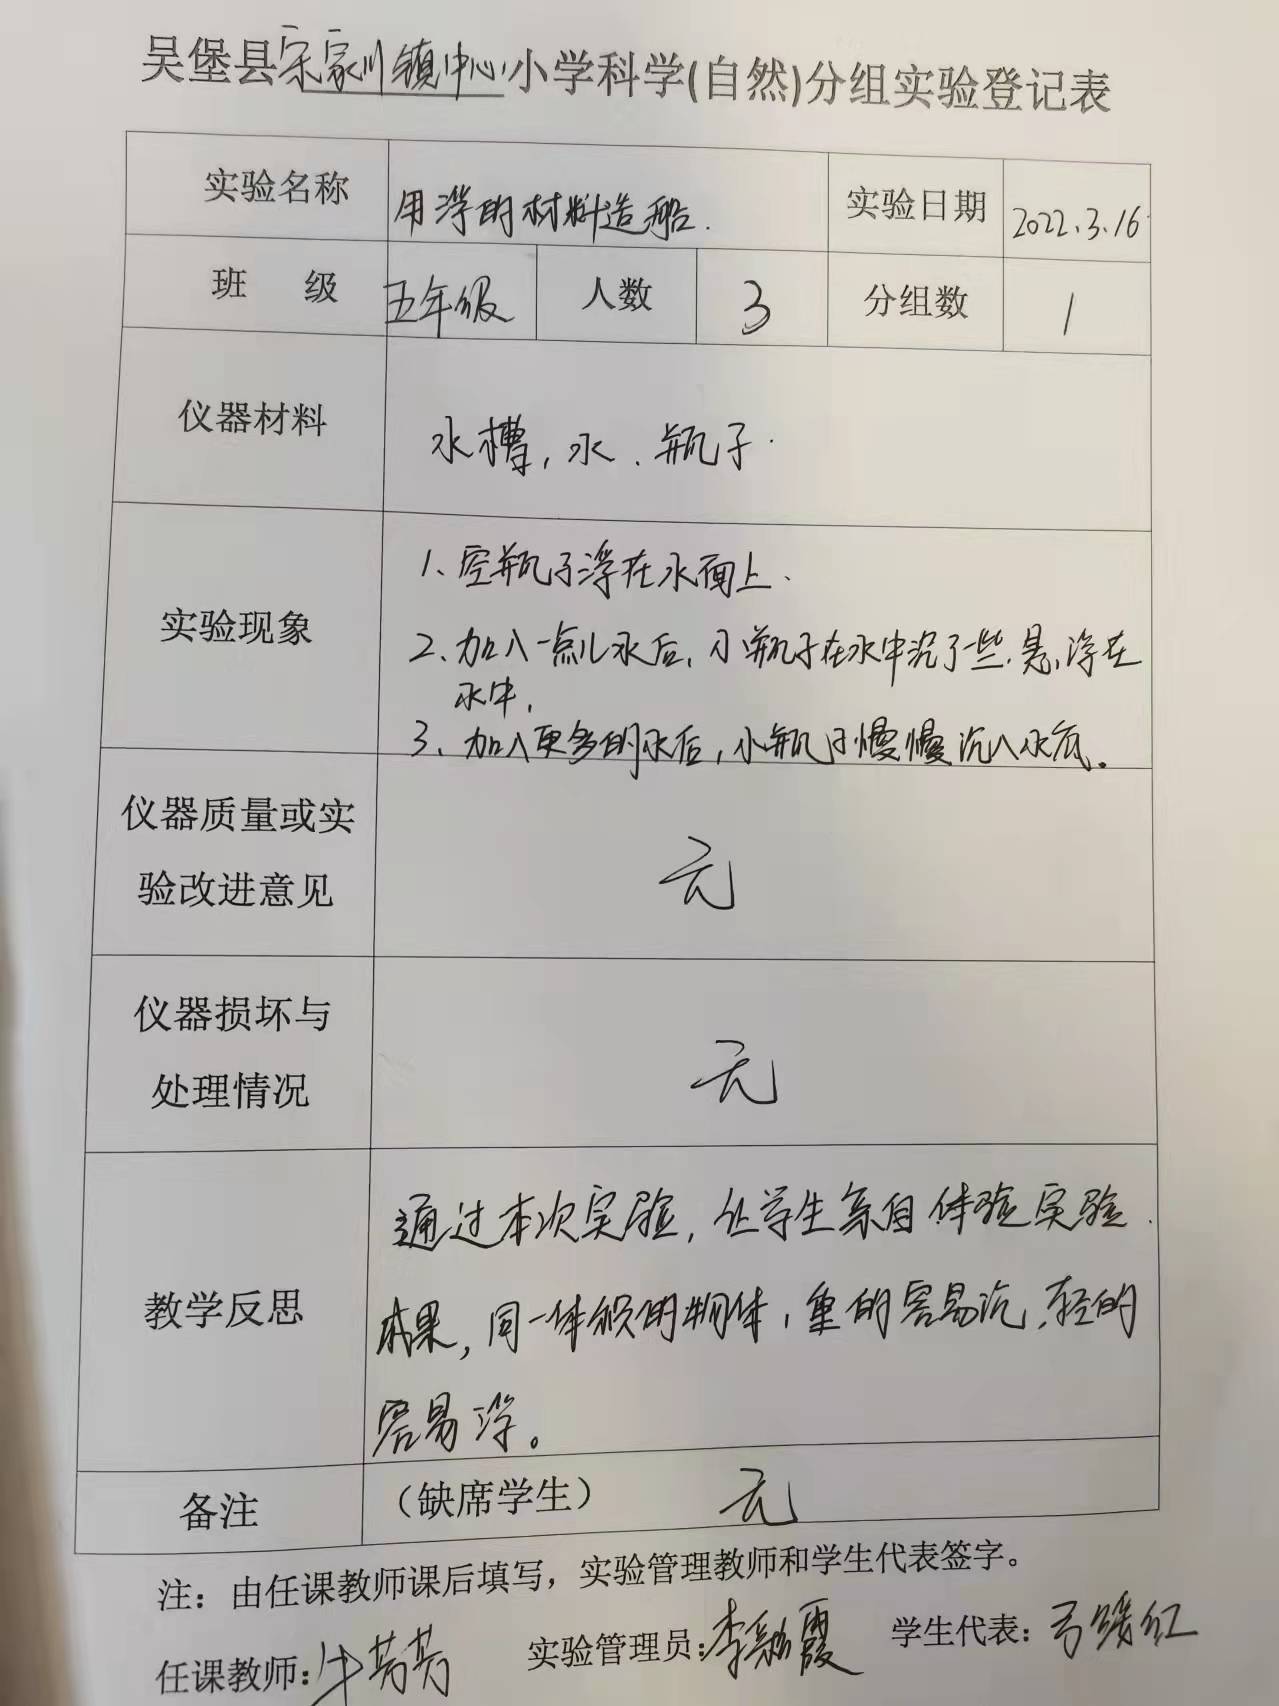 吴堡县宋家川镇中心小学科学(自然)分组实验登记表
实验名称 用浮的材料造船. 实验日期 2022.3.16
班 级 五年级 人数 3 分组数 1
仪器材料 水槽,水.瓶子.
实验现象
1、空瓶子浮在水面上.
2、加入一点儿水后,小瓶子在水中沉了一些.是,浮在
水中.
3、加入更多的水后,小瓶子慢慢沉入水底。
仪器质量或实
验改进意见
无
仪器损坏与
处理情况
无
教学反思
通过本次实验,让学生亲自体验实验
成果,同一体积的物体,重的容易沉,轻的
容易浮。
备注 (缺席学生) 无
注:由任课教师课后填写,实验管理教师和学生代表签字。
任课教师:牛芳芳 实验管理员:李霞 学生代表:弓红